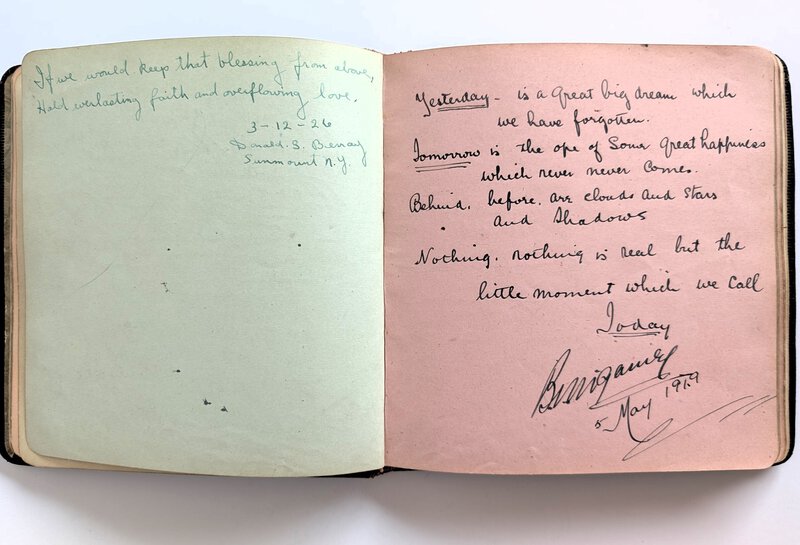 If we would keep that blessing from above,
Hold everlasting faith and overflowing love.
3-12-26
Donald. S.
Sunmount N.Y.
Yesterday - is a great big dream which
we have forgotten.
Tomorrow is the ope of Some great happiness
which never never comes.
Behind, before, are clouds and stars
and shadows
Nothing, nothing is real but the
little moment which we call
Today
5 May 1919